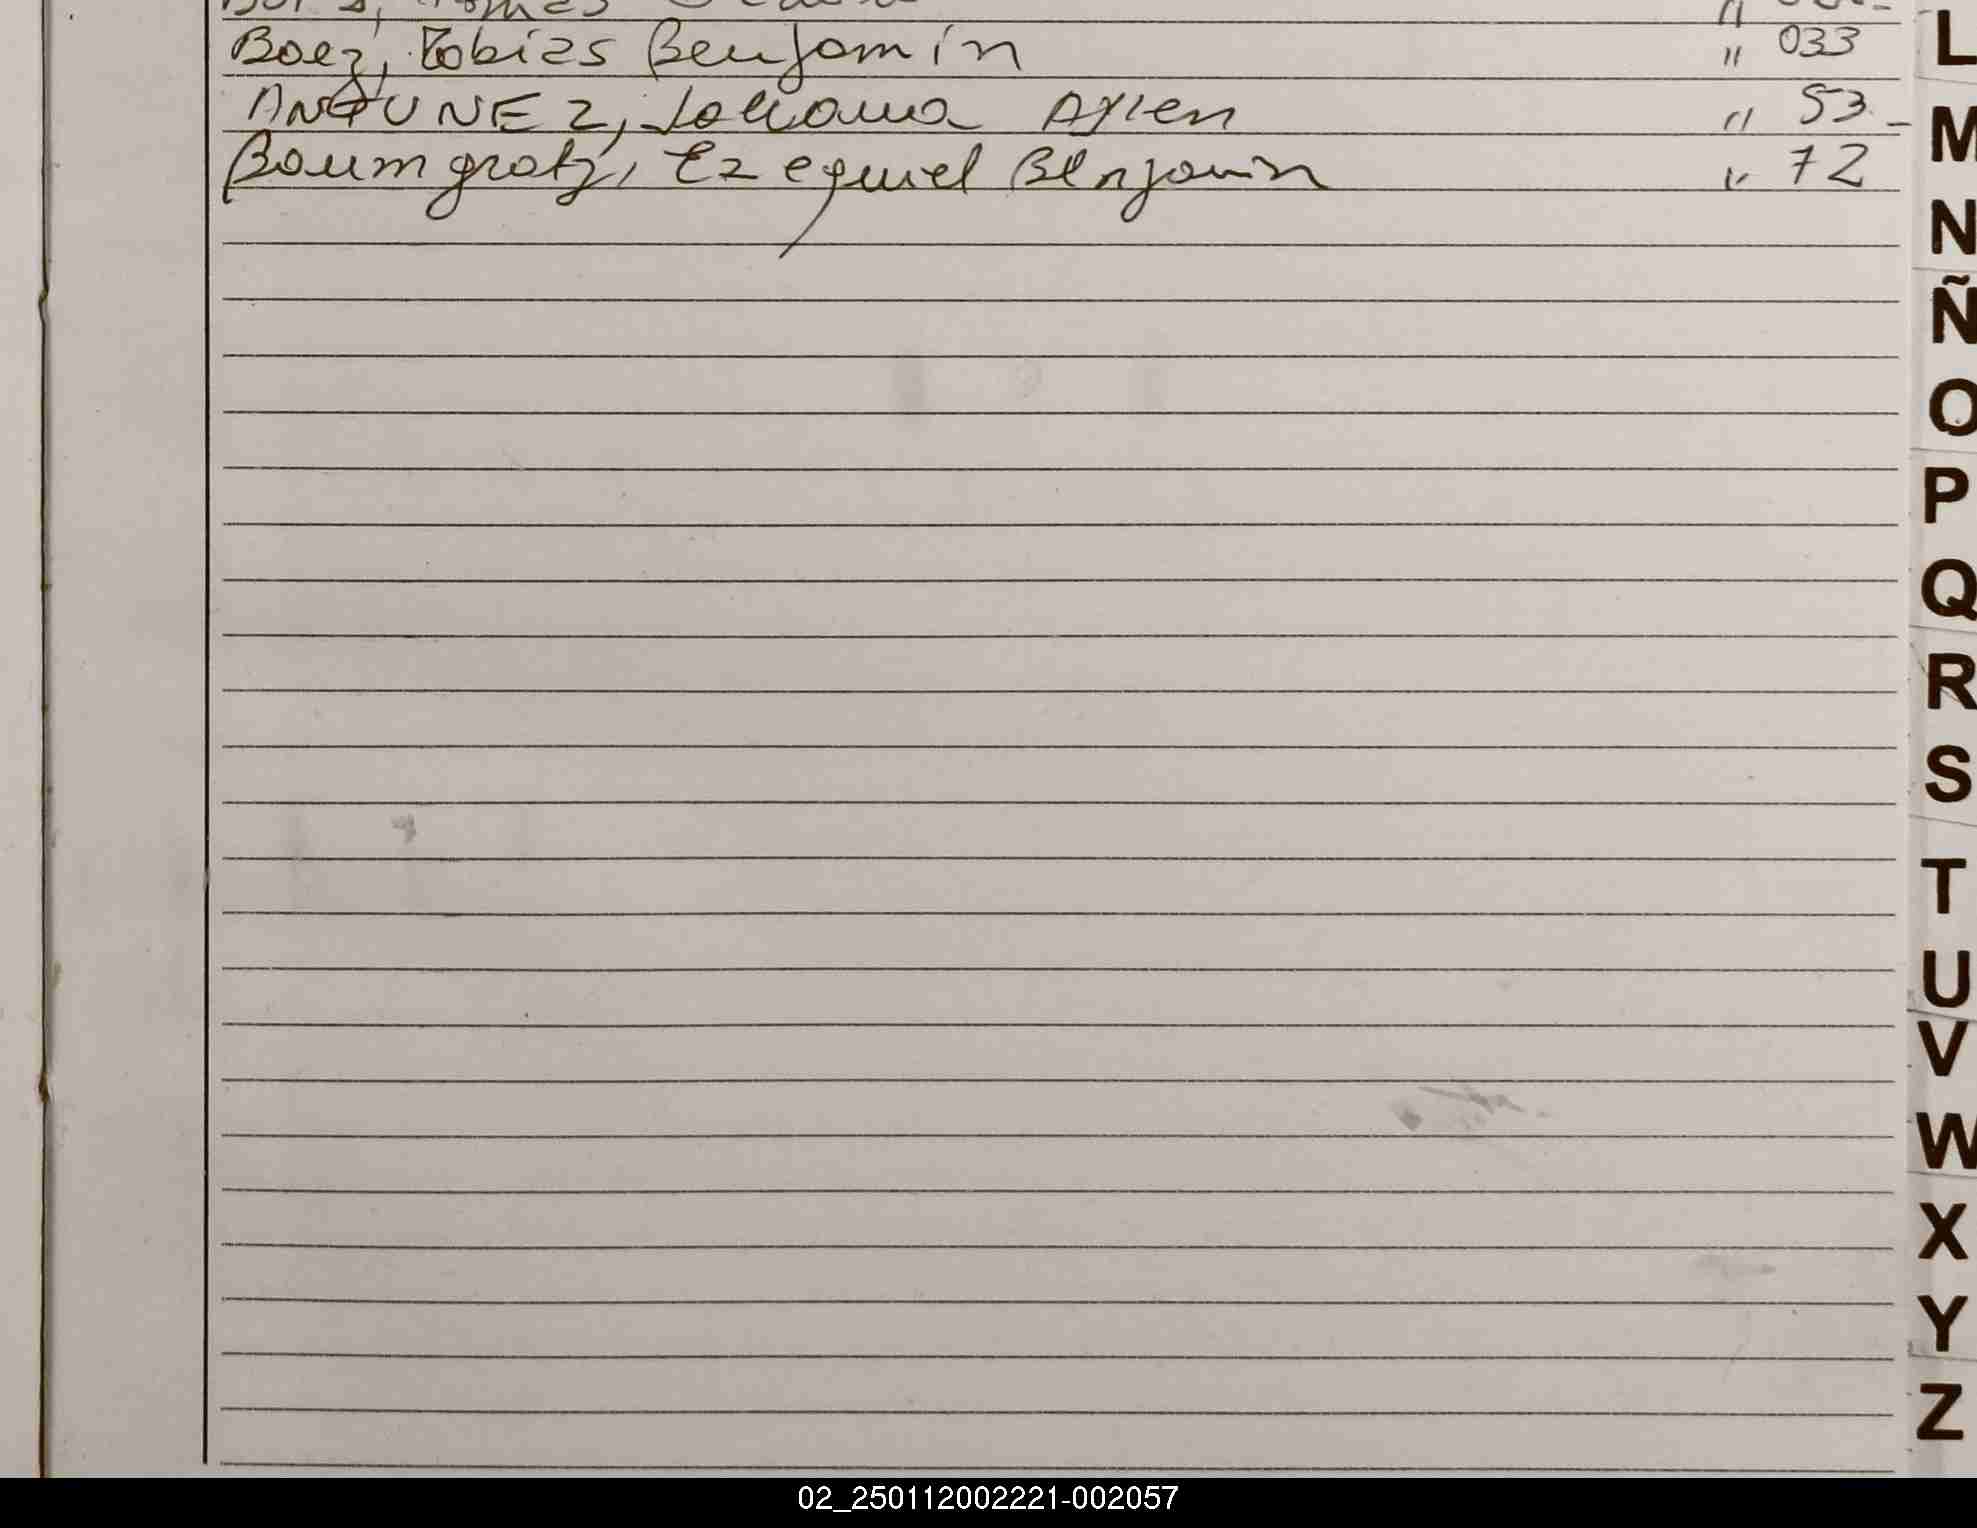 Tomas
Baez, Tobias Benjamin " 033
ANTUNEZ, Johana Aylen " 53 -
Baumgratz, Ezequiel Benjamin " 72
L
M
N
Ñ
O
P
Q
R
S
T
U
V
W
X
Y
Z
02_250112002221-002057